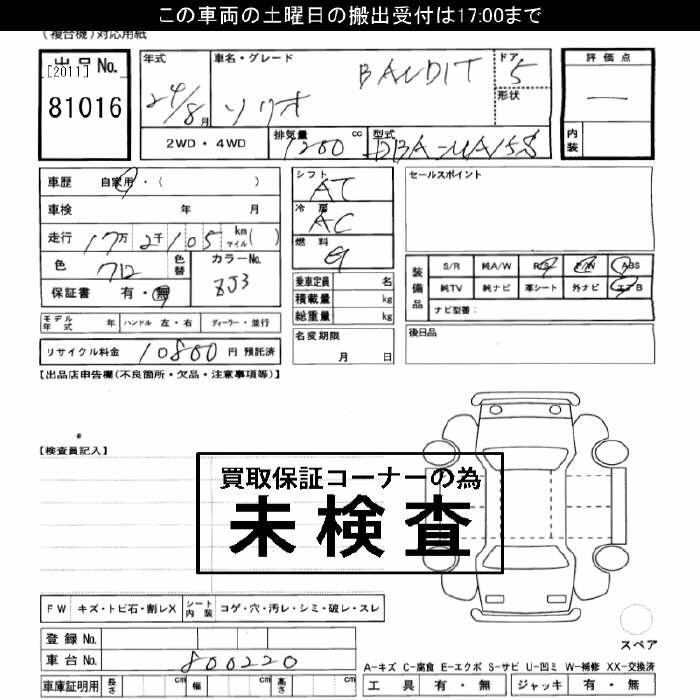 この車両の土曜日の搬出受付は17:00まで
(複合機)対応用紙
出品No.
[2011]
81016
年式
24/8月
車名・グレード
ソリオ BANDIT
ドア
5
形状
評価点
内装
2WD・4WD
排気量
1200 cc
型式
DBA-MA15S
車歴 自家用・( )
車検 年 月
走行 17万2千105 km マイル( )
色
色替
カラーNo.
ZJ3
保証書 有・無
シフト
AT
冷房
AC
燃料
乗車定員 名
積載量 kg
総重量 kg
セールスポイント
装備品
S/R 純A/W R/S P/W ABS
純TV 純ナビ 革シート 外ナビ エアB
ナビ型番:
モデル年式 年 ハンドル 左・右 ディーラー・並行
リサイクル料金 10800 円 預託済
名変期限
月 日
後日品
【出品店申告欄(不良箇所・欠品・注意事項等)】
【検査員記入】
買取保証コーナーの為
未検査
FW キズ・トビ石・割レX シート内装 コゲ・穴・汚レ・シミ・破レ・スレ
登録No.
車台No. 800220
車庫証明用 長さ cm 幅 cm 高さ cm
スペア
A-キズ C-腐食 E-エクボ S-サビ U-凹ミ W-補修 XX-交換済
工具 有・無 ジャッキ 有・無